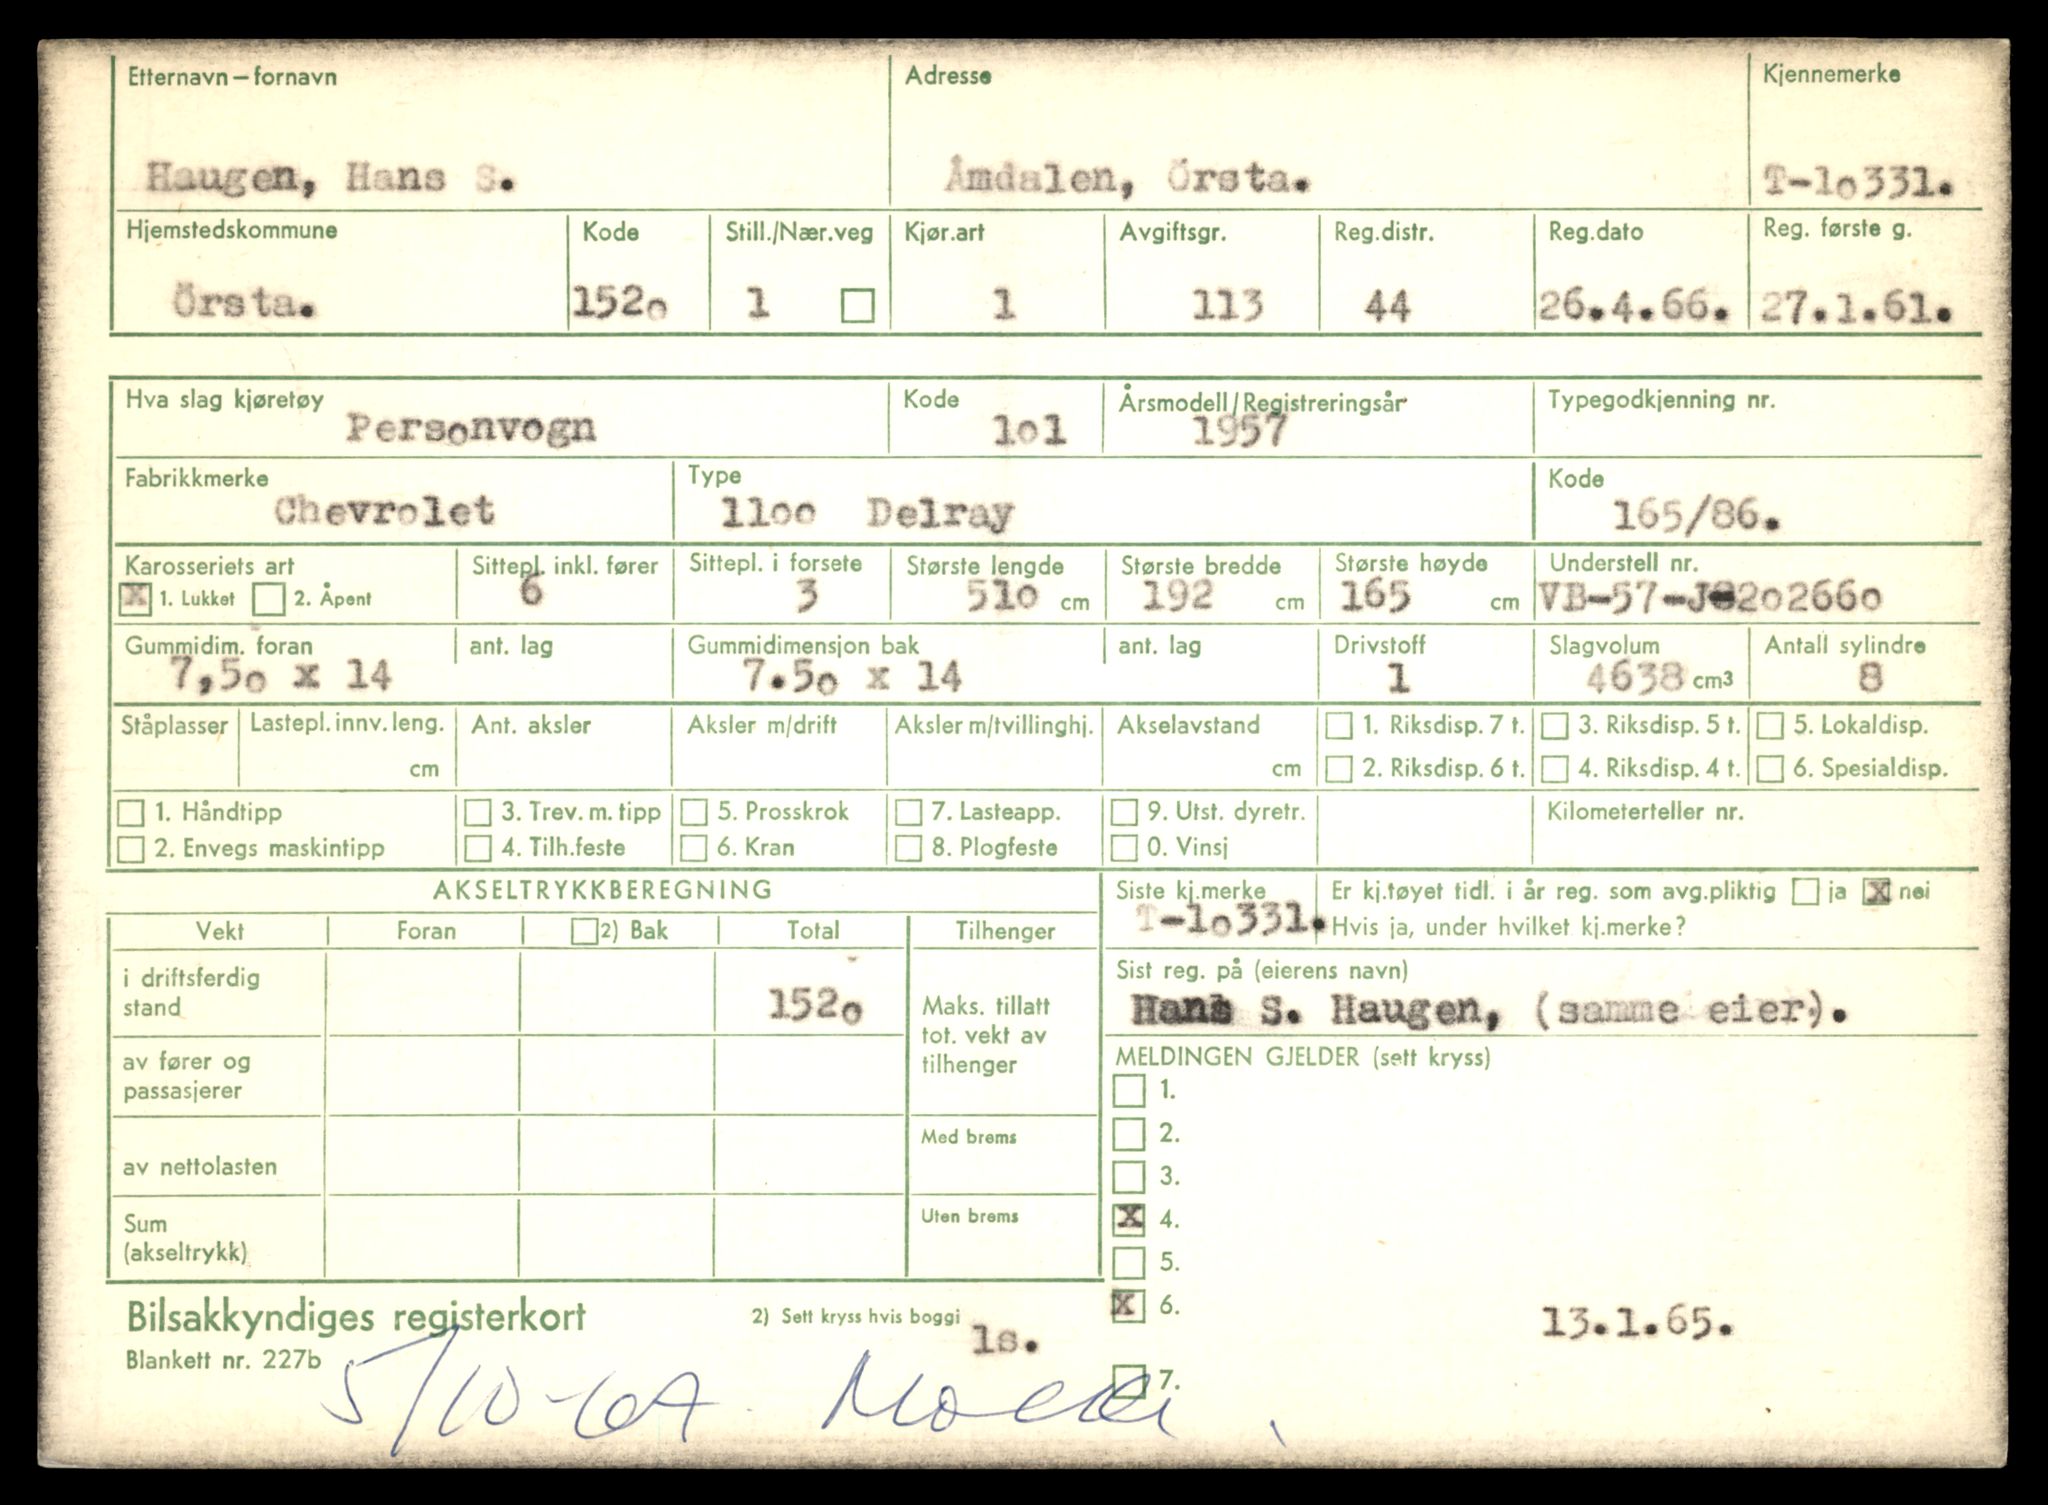 Etternavn – fornavn Adresse Kjennemerke
Haugen, Hans S. Åmdalen, Örsta. T-10331.
Hjemstedskommune Kode Still./Nær.veg Kjør.art Avgiftsgr. Reg.distr. Reg.dato Reg. første g.
Örsta. 1520 1 1 113 44 26.4.66. 27.1.61.
Hva slag kjøretøy Kode Årsmodell/Registreringsår Typegodkjenning nr.
Personvogn 101 1957
Fabrikkmerke Type Kode
Chevrolet 1100 Delray 165/86.
Karosseriets art Sittepl. inkl. fører Sittepl. i forsete Største lengde Største bredde Største høyde Understell nr.
X 1. Lukket 2. Åpent 6 3 510 cm 192 cm 165 cm VB-57-J-202660
Gummidim. foran ant. lag Gummidimensjon bak ant. lag Drivstoff Slagvolum Antall sylindre
7,50 x 14 7.50 x 14 1 4638 cm3 8
Ståplasser Lastepl. innv. leng. Ant. aksler Aksler m/drift Aksler m/tvillinghj. Akselavstand 1. Riksdisp. 7 t. 3. Riksdisp. 5 t. 5. Lokaldisp.
cm cm 2. Riksdisp. 6 t. 4. Riksdisp. 4 t. 6. Spesialdisp.
1. Håndtipp 3. Trev. m. tipp 5. Prosskrok 7. Lasteapp. 9. Utst. dyretr. Kilometerteller nr.
2. Envegs maskintipp 4. Tilh.feste 6. Kran 8. Plogfeste 0. Vinsj
AKSELTRYKKBEREGNING
Vekt Foran 2) Bak Total Tilhenger
i driftsferdig
stand 1520
Maks. tillatt
tot. vekt av
tilhenger
av fører og
passasjerer
Med brems
av nettolasten
Uten brems
Sum
(akseltrykk)
Siste kj.merke Er kj.tøyet tidl. i år reg. som avg.pliktig ja X nei
T-10331. Hvis ja, under hvilket kj.merke?
Sist reg. på (eierens navn)
Hans S. Haugen, (samme eier).
MELDINGEN GJELDER (sett kryss)
1.
2.
3.
X 4.
5.
X 6. 13.1.65.
7.
Bilsakkyndiges registerkort 2) Sett kryss hvis boggi
ls.
Blankett nr. 227b
5/10-67.